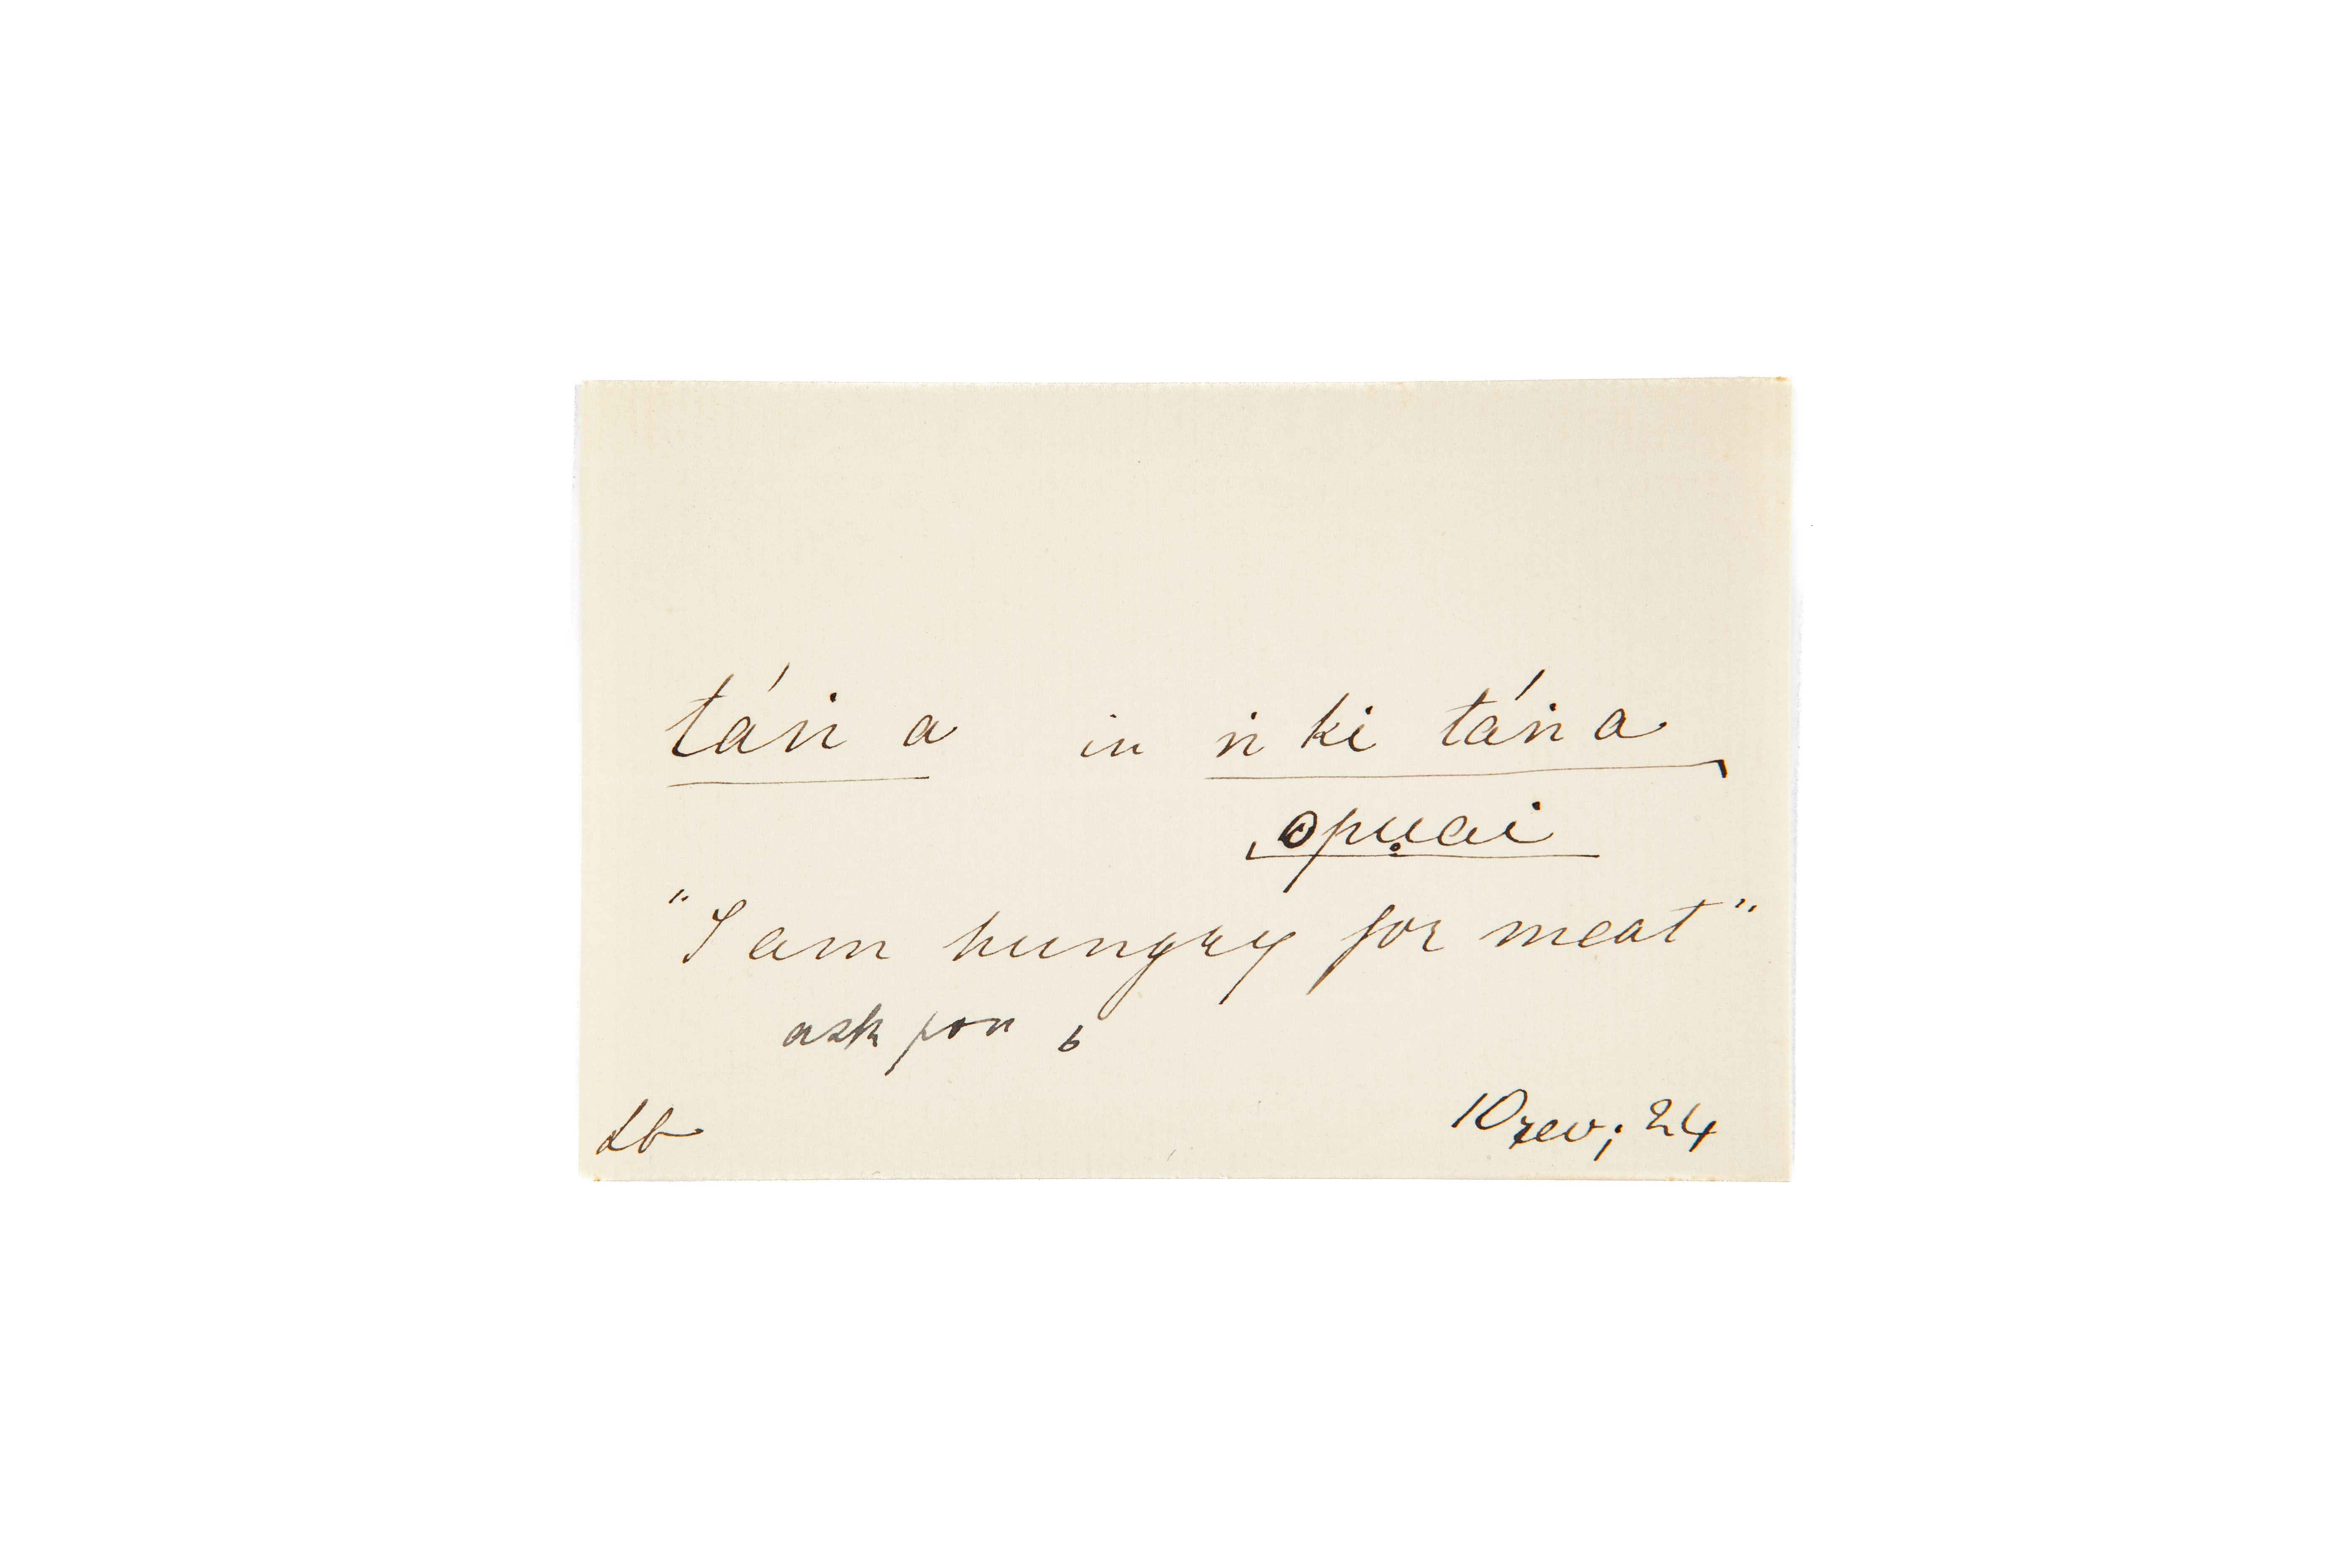 táṅ a in ṅ ki táṅ a,
opụai
"I am hungry for meat"
ask for
Lb 10 rev; 24